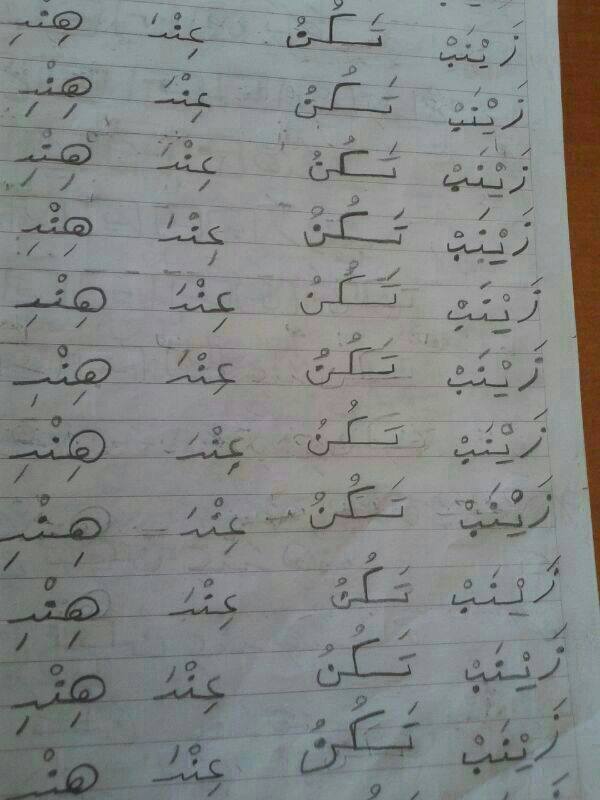 زَيْنَبْ تَسكُنُ عِنْدَ هِنْدِ
زَيْنَبْ تَسكُنُ عِنْدَ هِنْدِ
زَيْنَبْ تَسكُنُ عِنْدَ هِنْدِ
زَيْنَبْ تَسكُنُ عِنْدَ هِنْدِ
زَيْنَبْ تَسكُنُ عِنْدَ هِنْدِ
زَيْنَبْ تَسكُنُ عِنْدَ هِنْدِ
زَيْنَبْ تَسكُنُ عِنْدَ هِنْدِ
زَيْنَبْ تَسكُنُ عِنْدَ هِنْدِ
زَيْنَبْ تَسكُنُ عِنْدَ هِنْدِ
زَيْنَبْ تَسكُنُ عِنْدَ هِنْدِ
زَيْنَبْ تَسكُنُ عِنْدَ هِنْدِ